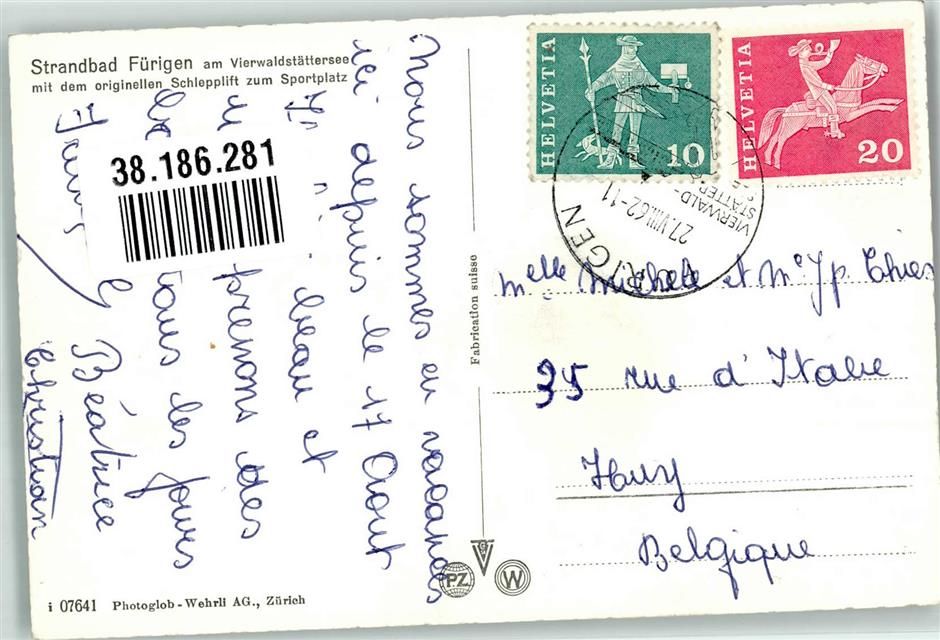 Strandbad Fürigen am Vierwaldstättersee
mit dem originellen Schlepplift zum Sportplatz
Nous sommes en vacances
ici depuis le 17 Aout
beau et
prenons des
tous les jours
Béatrice
Christian
38.186.281
Fabrication suisse
HELVETIA
10
HELVETIA
20
27.VIII.62-11
VIERWALD-
STÄTTER-
Melle Michele et Mr Jp Thies
35 rue d'Italie
Huy
Belgique
PZ
W
i 07641 Photoglob-Wehrli AG., Zürich